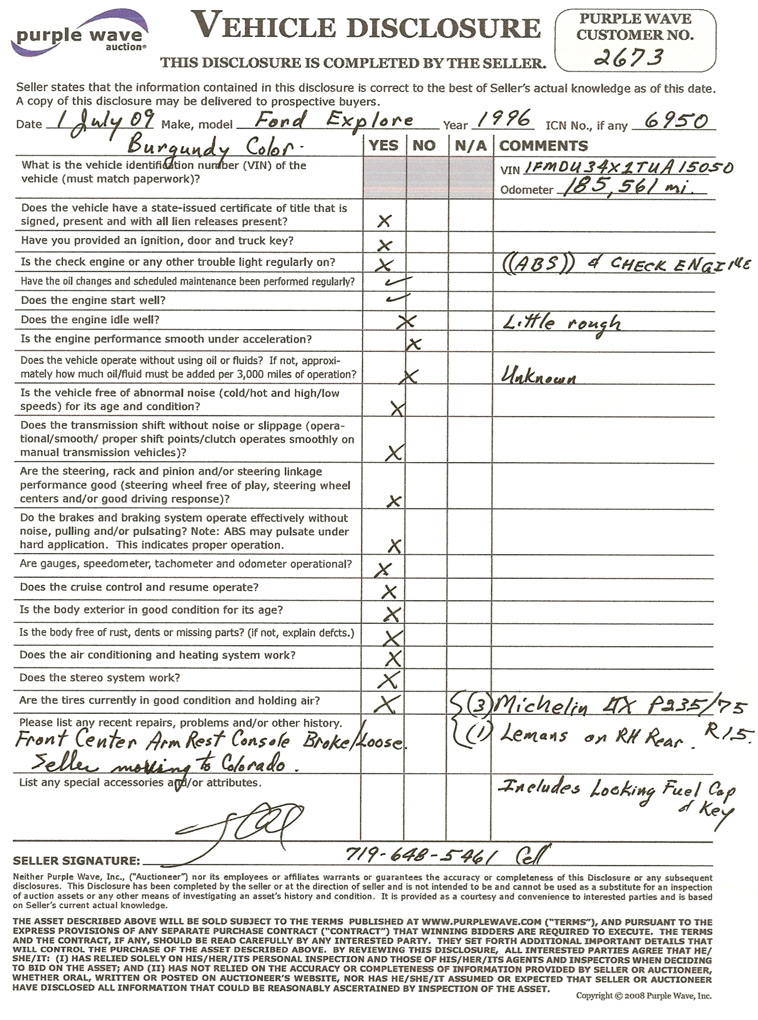 purple wave
auction®
VEHICLE DISCLOSURE
THIS DISCLOSURE IS COMPLETED BY THE SELLER.
PURPLE WAVE
CUSTOMER NO.
2673
Seller states that the information contained in this disclosure is correct to the best of Seller's actual knowledge as of this date.
A copy of this disclosure may be delivered to prospective buyers.
Date 1 July 09 Make, model Ford Explore Year 1996 ICN No., if any 6950
Burgundy Color.
YES NO N/A COMMENTS
What is the vehicle identification number (VIN) of the
vehicle (must match paperwork)?
VIN 1FMDU34X2TUA15050
Odometer 185,561 mi.
Does the vehicle have a state-issued certificate of title that is
signed, present and with all lien releases present? X
Have you provided an ignition, door and truck key? X
Is the check engine or any other trouble light regularly on? X ((ABS)) & CHECK ENGINE
Have the oil changes and scheduled maintenance been performed regularly? ✓
Does the engine start well? ✓
Does the engine idle well? X Little rough
Is the engine performance smooth under acceleration? X
Does the vehicle operate without using oil or fluids? If not, approxi-
mately how much oil/fluid must be added per 3,000 miles of operation? X Unknown
Is the vehicle free of abnormal noise (cold/hot and high/low
speeds) for its age and condition? X
Does the transmission shift without noise or slippage (opera-
tional/smooth/ proper shift points/clutch operates smoothly on
manual transmission vehicles)? X
Are the steering, rack and pinion and/or steering linkage
performance good (steering wheel free of play, steering wheel
centers and/or good driving response)? X
Do the brakes and braking system operate effectively without
noise, pulling and/or pulsating? Note: ABS may pulsate under
hard application. This indicates proper operation. X
Are gauges, speedometer, tachometer and odometer operational? X
Does the cruise control and resume operate? X
Is the body exterior in good condition for its age? X
Is the body free of rust, dents or missing parts? (if not, explain defcts.) X
Does the air conditioning and heating system work? X
Does the stereo system work? X
Are the tires currently in good condition and holding air? X (3) Michelin LTX P235/75
Please list any recent repairs, problems and/or other history.
(1) Lemans on RH Rear. R15.
Front Center Arm Rest Console Broke/Loose.
Seller moving to Colorado.
List any special accessories and/or attributes.
Includes Locking Fuel Cap
& Key
SELLER SIGNATURE: 719-648-5461 Cell
Neither Purple Wave, Inc., ("Auctioneer") nor its employees or affiliates warrants or guarantees the accuracy or completeness of this Disclosure or any subsequent
disclosures. This Disclosure has been completed by the seller or at the direction of seller and is not intended to be and cannot be used as a substitute for an inspection
of auction assets or any other means of investigating an asset's history and condition. It is provided as a courtesy and convenience to interested parties and is based
on Seller's current actual knowledge.
THE ASSET DESCRIBED ABOVE WILL BE SOLD SUBJECT TO THE TERMS PUBLISHED AT WWW.PURPLEWAVE.COM ("TERMS"), AND PURSUANT TO THE
EXPRESS PROVISIONS OF ANY SEPARATE PURCHASE CONTRACT ("CONTRACT") THAT WINNING BIDDERS ARE REQUIRED TO EXECUTE. THE TERMS
AND THE CONTRACT, IF ANY, SHOULD BE READ CAREFULLY BY ANY INTERESTED PARTY. THEY SET FORTH ADDITIONAL IMPORTANT DETAILS THAT
WILL CONTROL THE PURCHASE OF THE ASSET DESCRIBED ABOVE. BY REVIEWING THIS DISCLOSURE, ALL INTERESTED PARTIES AGREE THAT HE/
SHE/IT: (I) HAS RELIED SOLELY ON HIS/HER/ITS PERSONAL INSPECTION AND THOSE OF HIS/HER/ITS AGENTS AND INSPECTORS WHEN DECIDING
TO BID ON THE ASSET; AND (II) HAS NOT RELIED ON THE ACCURACY OR COMPLETENESS OF INFORMATION PROVIDED BY SELLER OR AUCTIONEER,
WHETHER ORAL, WRITTEN OR POSTED ON AUCTIONEER'S WEBSITE, NOR HAS HE/SHE/IT ASSUMED OR EXPECTED THAT SELLER OR AUCTIONEER
HAVE DISCLOSED ALL INFORMATION THAT COULD BE REASONABLY ASCERTAINED BY INSPECTION OF THE ASSET.
Copyright © 2008 Purple Wave, Inc.